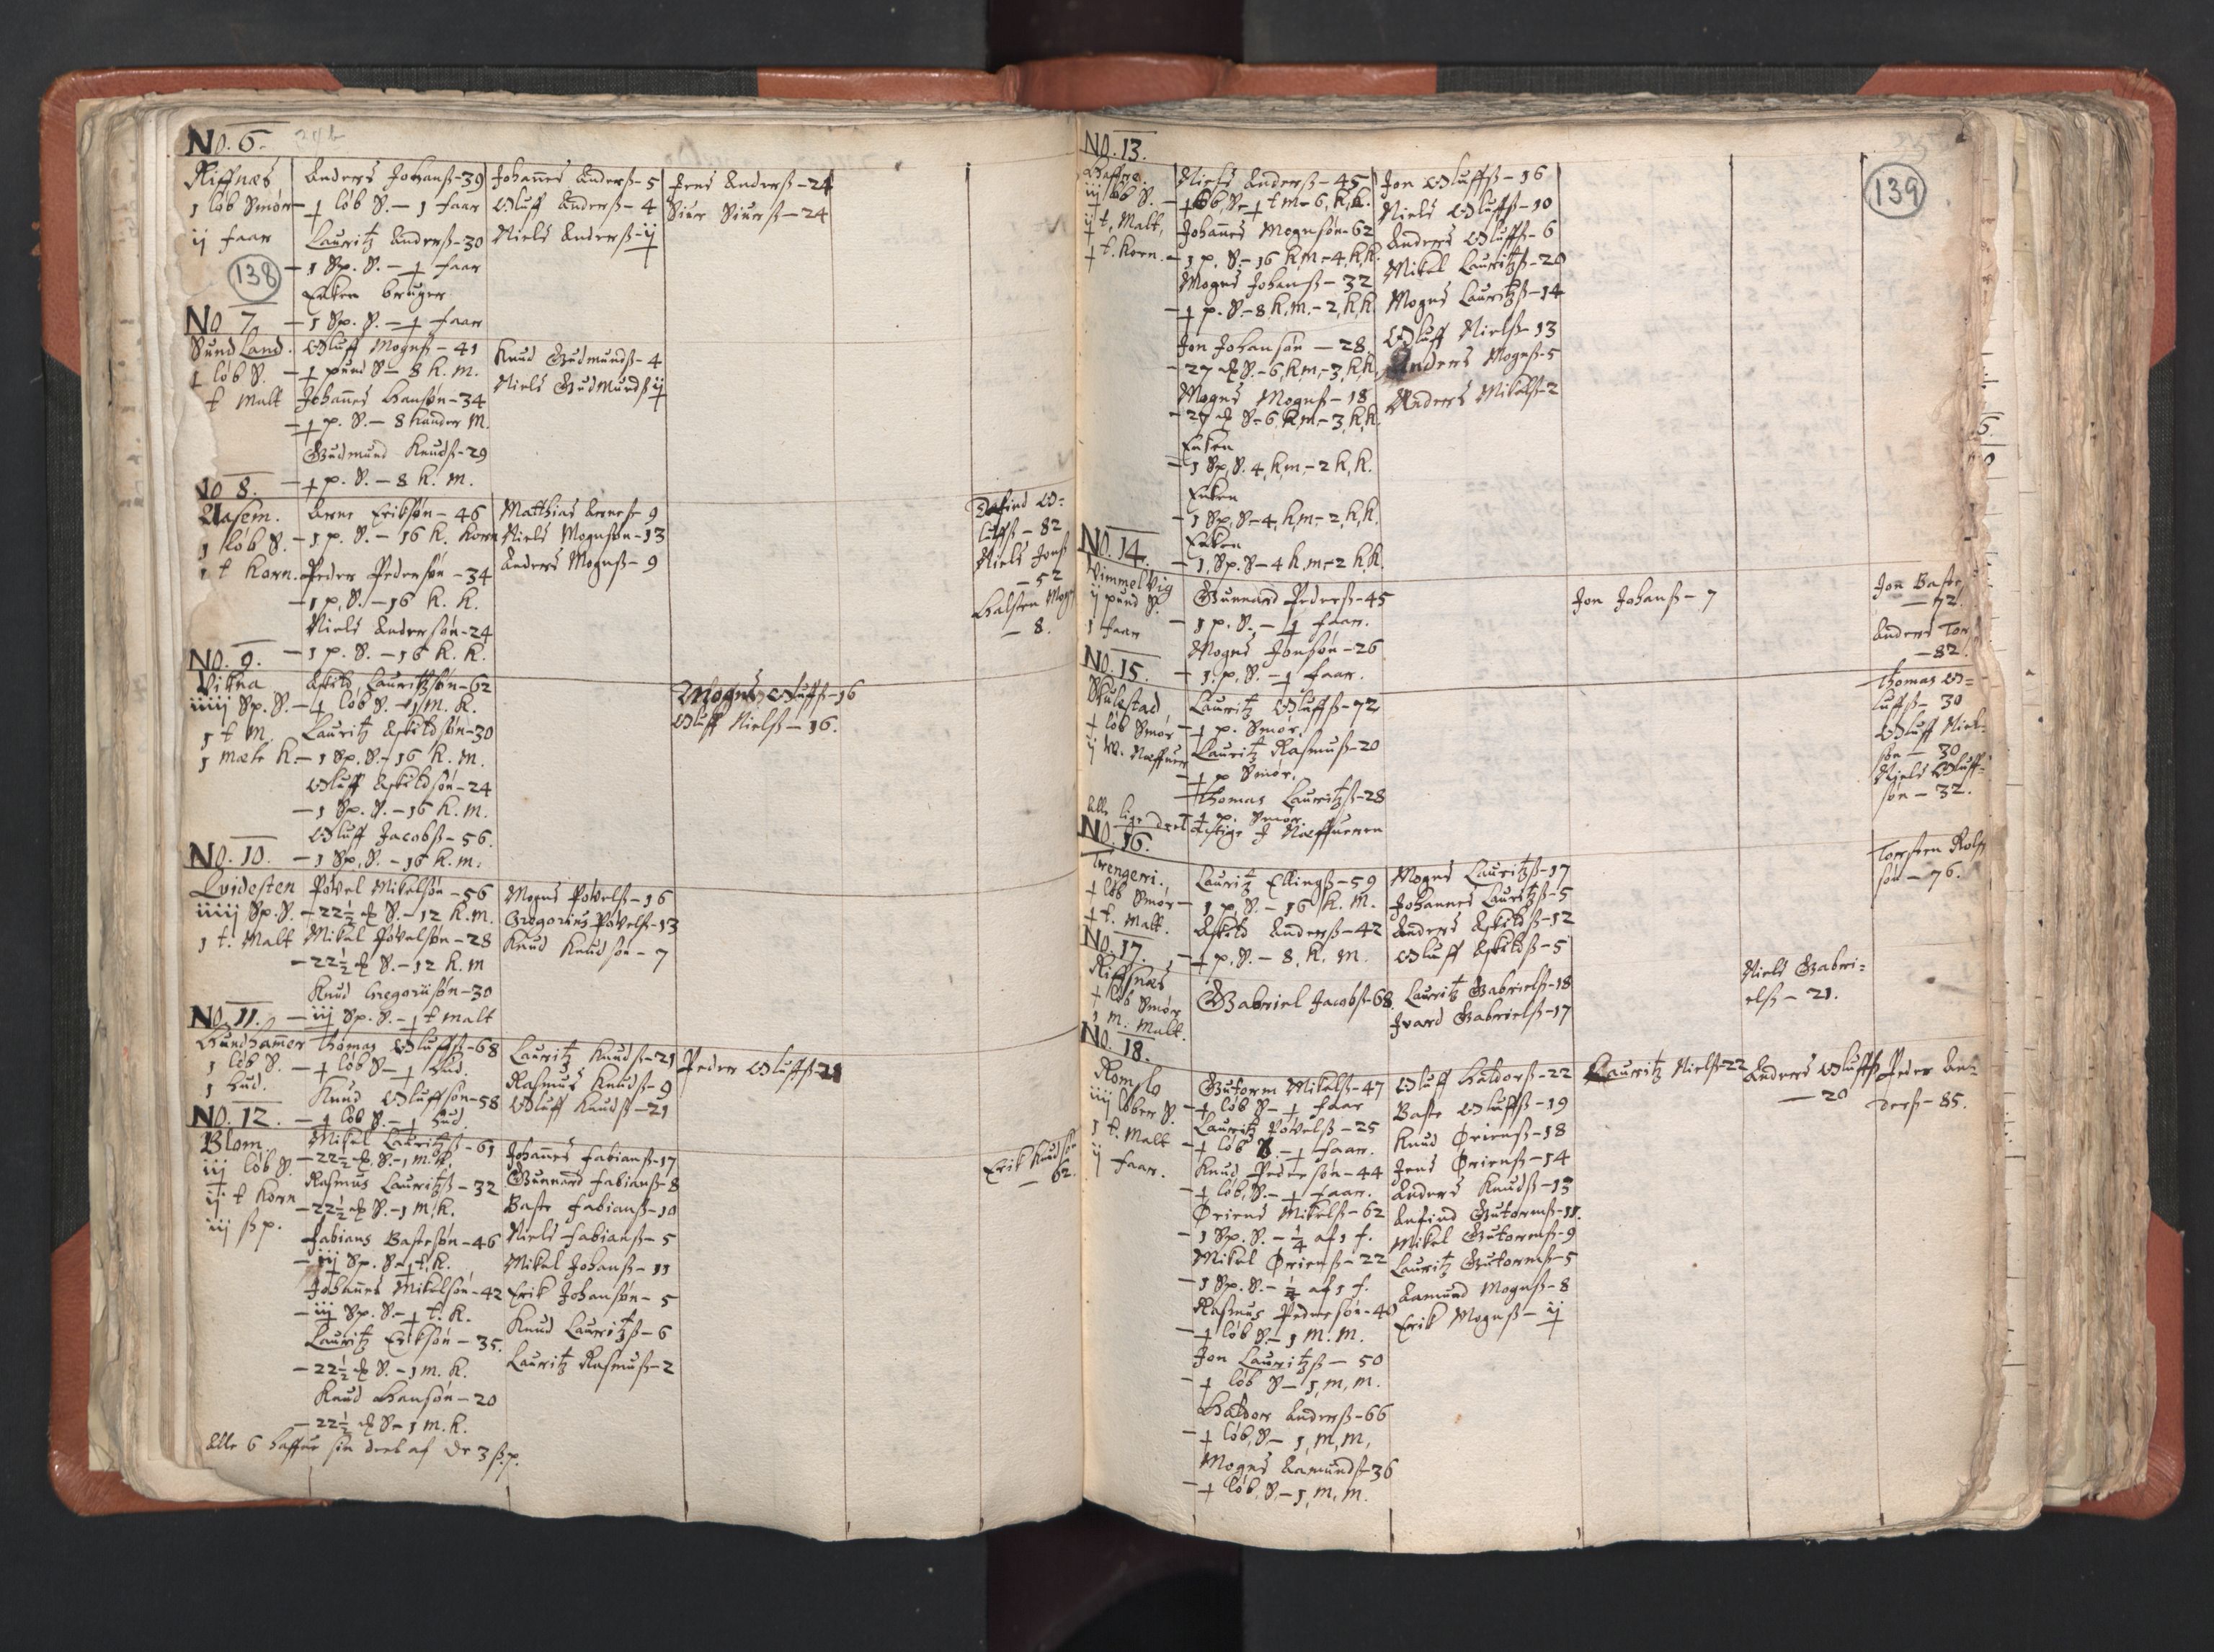 No. 6.
Riffnæs
1 løb Smør
ij faar
138
Anders Johanß-39
- ƚ løb S.- 1 faar
Lauritz Anderß-30
- 1 Sp. S. - ƚ faar
Enken bruger
- 1 Sp. S. - ƚ faar
Johanes Anderß-5
Oluff Anderß-4
Niels Anderß-
Jens Anderß-24
Siur Siurß-24
No 7
Sundland.
ƚ løb S.
t Malt
Oluff Mognß-41
- ƚ pund S- 8 k. m.
Johanes Hansøn-34
- ƚ p. S.- 8 kander M.
Gudmund Knudß-29
- ƚ p. S.- 8 k. m.
Knud Gudmundß-4
Niels Gudmundß
No 8.
Aasem.
1 løb S.
1 t Korn.
Arne Eriksøn-46
- 1 p. S.- 16 k. korn
Peder Pedersøn-34
- 1 p. S.- 16 k. k.
Niels Andersøn-24
- 1 p. S.- 16 k. k.
Matthias Arneß-9
Niels Mognsøn-13
Anders Mognß-9
O-
luffß-82
Niels Jonß
-52
Halsten Mogn
-8.
No. 9.
Vikna
iiiij Sp. S.
1 t M.
1 mæle k.
Askild Lauritzsøn-62
- ƚ løb S. - 1 m. k.
Lauritz Askildsøn-30
- 1 Sp. S.- 16 k. m.
Oluff Askildsøn-24
- 1 Sp. S.- 16 k. m.
Oluff Jacobß-56.
- 1 Sp. S.- 16 k. m.
Mogns Oluffß-16
Oluff Nielß-16.
No. 10.
Qvidesten
iiiij Sp. S.
1 t. Malt
Povel Mikelsøn-56
- 22½ ℔ S.- 12 k. m.
Mikel Povelsøn-28
- 22½ ℔ S.- 12 k. m
Knud Gregoriisøn-30
- iij Sp. S.- ƚ t malt
Mogns Povelß-16
Gregorius Povelß-13
Knud Knudsøn-7
No. 11.
Hundhamer
1 løb S.
1 Hud.
Thomas Oluffß-68
- ƚ løb S- ƚ Hud.
Knud Oluffsøn-58
- ƚ løb S.- ƚ Hud.
Lauritz Knudß-21
Rasmus Knudß-9
Oluff Knudß-21
Peder Oluffß-21
No. 12.
Blom
iij løb S.
ij t Korn
iij ß p.
Mikel Lauritzß-61
- 22½ ℔. S.- 1 m. k.
Rasmus Lauritzß-32
- 22½ ℔ S.- 1 m. k.
Fabians Bastesøn-46
- iij Sp. S- ƚ t. k.
Johanes Mikelsøn-42
- iij Sp. S.- ƚ t. k.
Lauritz Eriksøn-35.
- 22½ ℔ S.- 1 m. k.
Knud Hansøn-20
- 22½ ℔ S- 1 m. k.
Alle 6 haffue sin deel af de 3 ß. p.
Johanes Fabianß-17
Gunnard Fabianß-8
Baste Fabianß-10
Niels Fabianß-5
Mikel Johanß-11
Erik Johansøn-5
Knud Lauritzß-6
Lauritz Rasmuß-2
Erik Knudsøn
-62.
No. 13.
139
iij løb S.
ij t. Malt,
ƚ t. Korn.
Niels Anderß-45
- ƚ løb S.- ƚ t m- 6, k, k.
Johanes Mognsøn-62
- 1 p. S.- 16 k. m.- 4, k, k.
Mogns Johanß-32
- ƚ p. S.- 8 k. m.- 2, k, k
Jon Johansøn-28.
- 27 ℔ S.- 6, k, m,- 3, k, k.
Mogns Mognß-18
- 27 ℔ S- 6, k, m- 3, k, k.
Enken
- 1 Sp. S. 4, k, m,- 2 k, k.
Enken
- 1 Sp. S- 4, k, m,- 2, k, k.
Enken
- 1, Sp. S- 4 k. m,- 2 k, k.
Jon Oluffß-16
Niels Oluffß-10
Anders Oluffß-6
Mikel Lauritzß-20
Mogns Lauritzß-14
Oluff Nielß-13
Anders Mognß-5
Anders Mikelß-2
No. 14.
Vimmelvig
ij pund S.
1 faar
Gunnard Pederß-45
- 1 p. S. - ƚ faar.
Mogns Jonsøn-26
- 1, p. S. - ƚ faar.
Jon Johanß-7
Jon Baste
-72.
Anders Tor
-82.
No. 15.
Skulestad
ƚ løb Smør
ij W. Næffuer
Lauritz Oluffß-72
- ƚ p. Smør.
Lauritz Rasmuß-20
- ƚ p Smør.
Thomas Lauritzß-28
- ƚ p. Smør
Alle lige deelactige J Næffueren
Thomas O-
luffß-30
Oluff Niel-
søn-30
Niels Oluff-
søn-32.
No. 16.
Trengeri.
ƚ løb Smør
ƚ t. Malt.
Lauritz Ellingß-59
- 1 p. S.- 16 k. m.
Askild Anderß-42
- ƚ p. S.- 8, k. m.
Mogns Lauritzß-17
Johannes Lauritzß-5
Anders Askildß-12
Oluff Askildß-5
Torsten Rolf
søn-76.
No. 17.
Riffsnæs
ƚ løb Smør
1 m. Malt.
Gabriel Jacobß-68
Lauritz Gabrielß-18
Ivard Gabrielß-17
Niels Gabri-
elß-21.
No. 18.
Romslo
iiij løber S.
1 t. Malt
ij faar.
Gutorm Mikelß-47
- ƚ løb S- ƚ faar
Lauritz Povelß-25
- ƚ løb S.- ƚ faar.
Knud Pedersøn-44
- ƚ løb, S.- ƚ faar.
Øriens Mikelß-62
- 1 Sp. S.- ¼ af 1 f.
Mikel Ørienß-22
- 1 Sp. S.- ¼ af 1 f.
Rasmus Pedersøn-40
- ƚ løb S.- 1 m. m.
Jon Lauritzß-50
- ƚ løb S- 1, m, m.
Haldor Anderß-66
- ƚ løb, S.- 1, m, m,
Mogns Aamundß-36
- ƚ løb, S.- 1, m, m.
Oluff Haldorß-22
Baste Oluffß-19
Knud Ørienß-18
Jens Ørienß-14
Anders Knudß-13
Anfind Gutormß-11.
Mikel Gutormß-9
Lauritz Gutormß-5
Aamund Mognß-8
Erik Mognß-
Lauritz Nielß-22
Anders Oluffß
-20
Peder An-
derß-85.